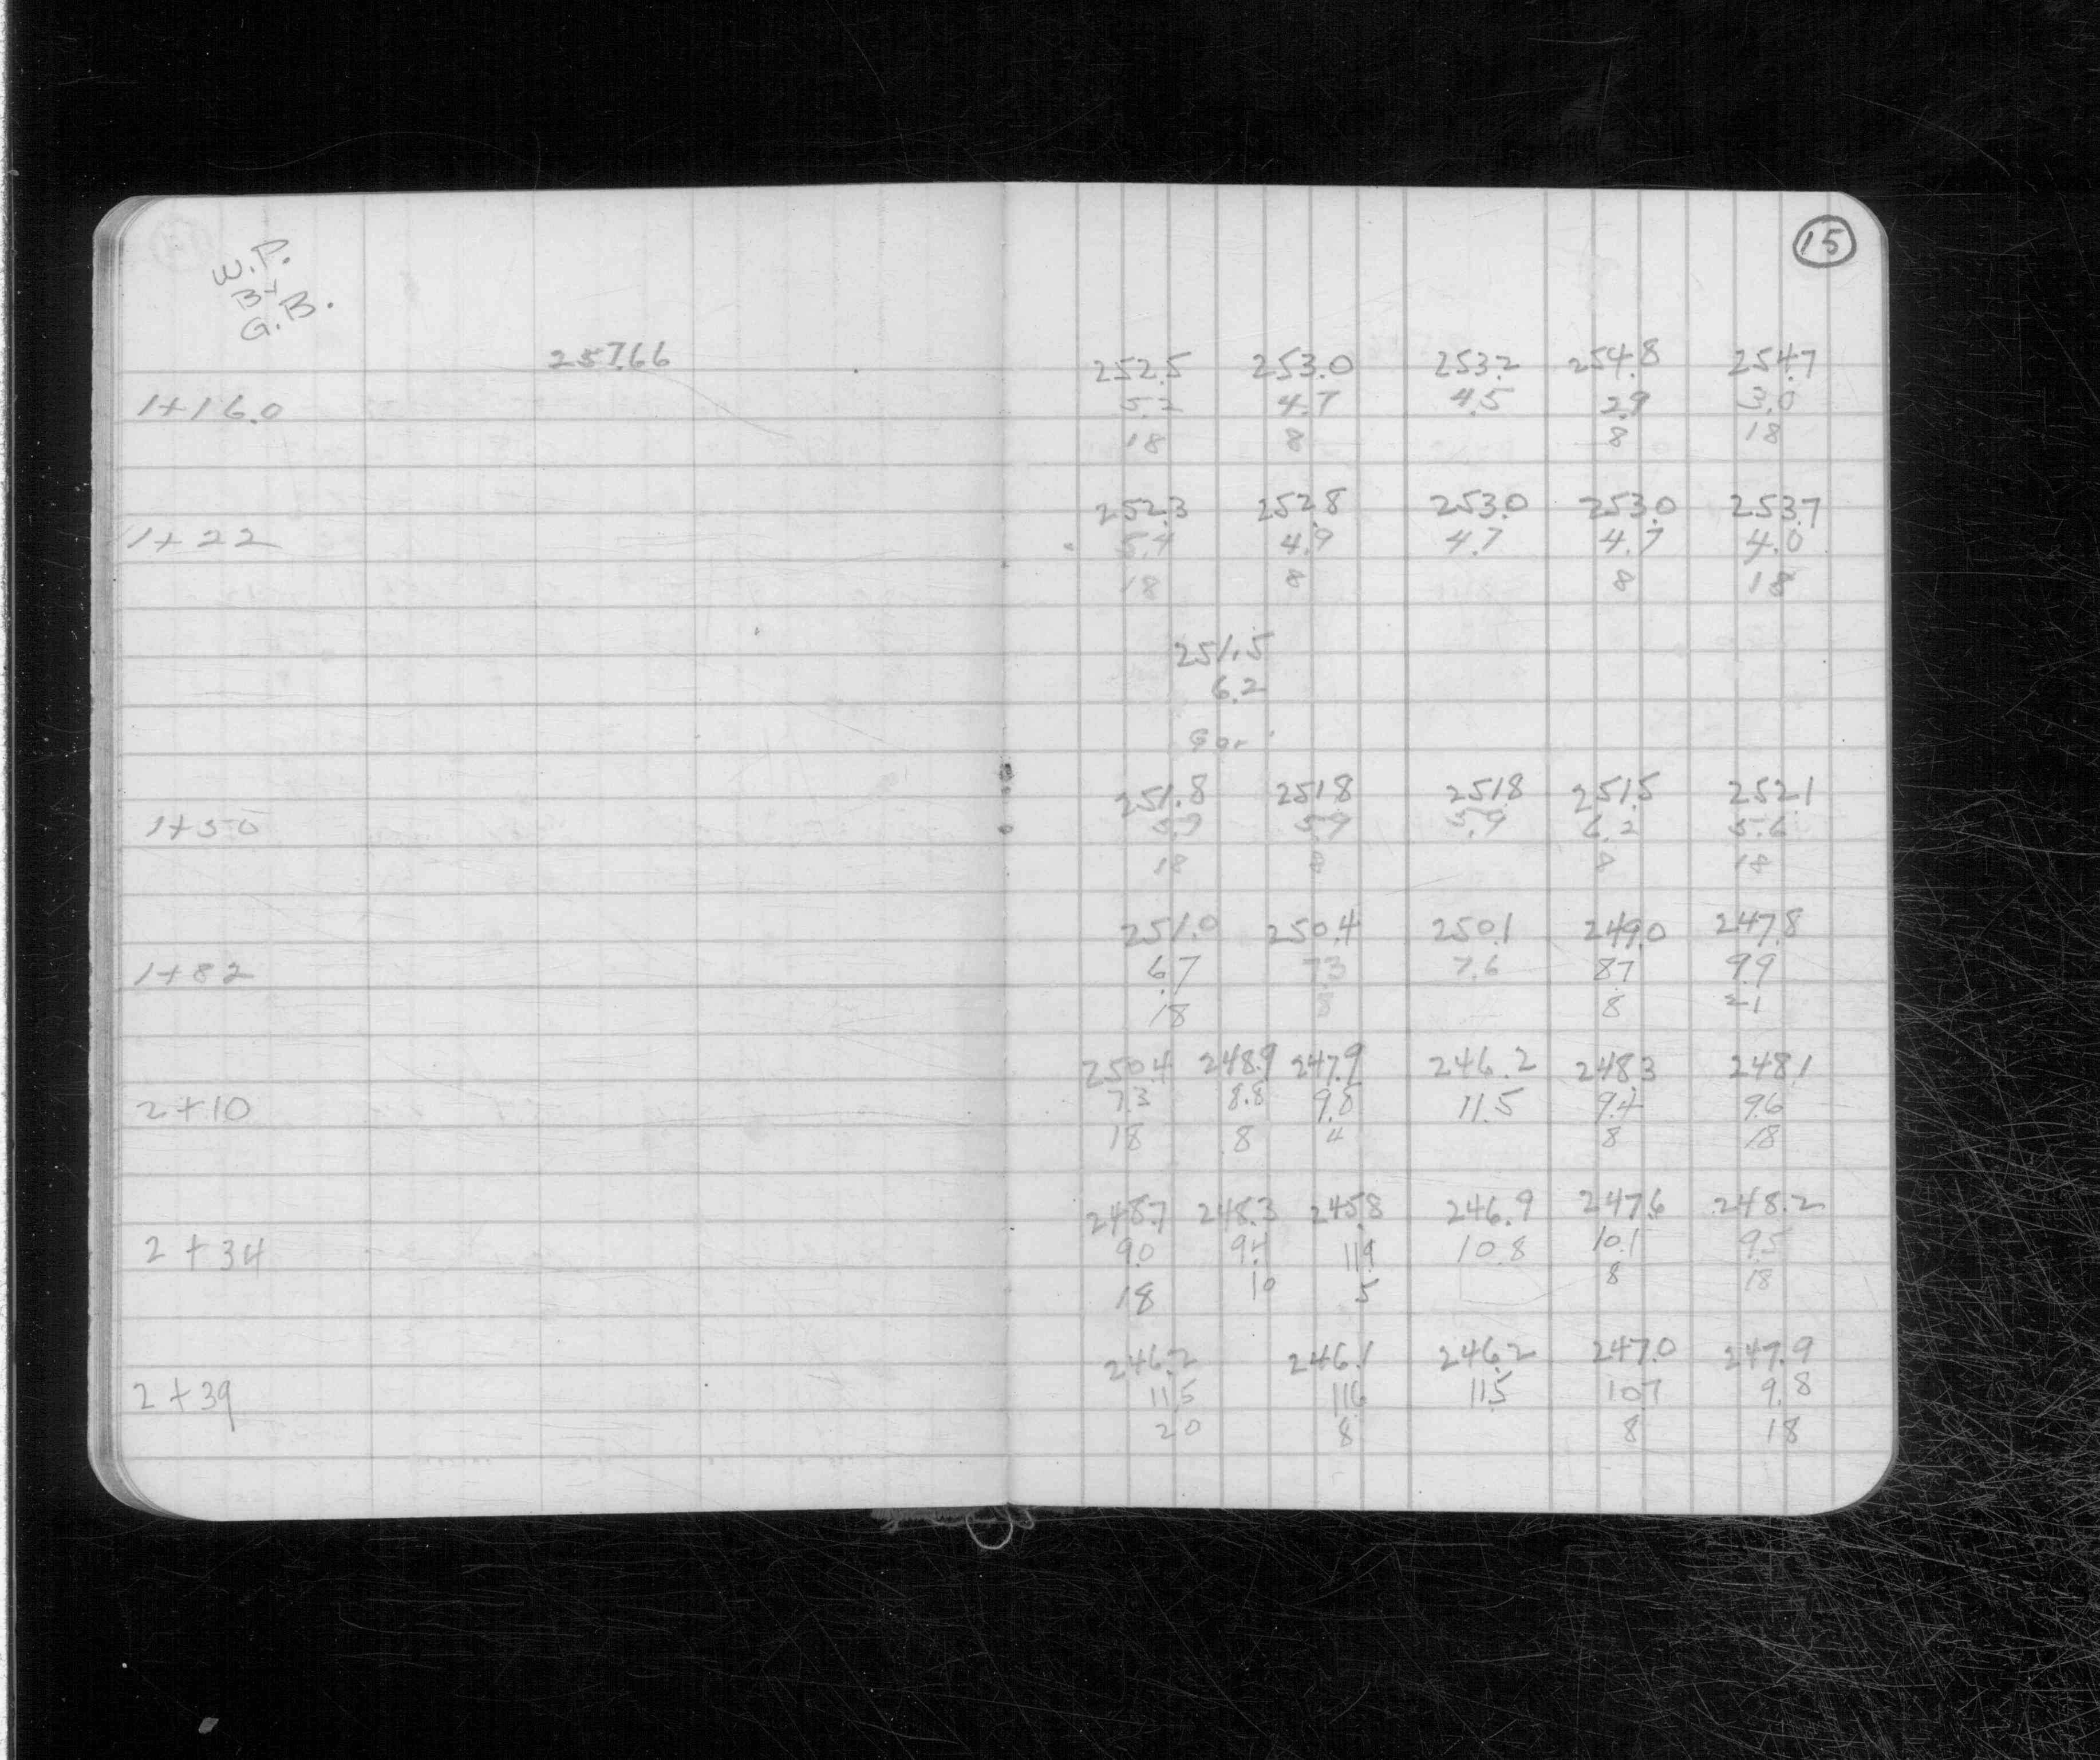 15
W.P.
BY
G.B.
257.66
252.5 253.0 253.2 254.8 254.7
1+16.0 5.2 4.7 4.5 2.9 3.0
18 8 8 18
252.3 252.8 253.0 253.0 253.7
1+22 5.4 4.9 4.7 4.7 4.0
18 8 8 18
251.5
6.2
251.8 251.8 251.8 251.5 252.1
1+50 5.9 5.9 5.9 6.2 5.6
18 8 8 18
251.0 250.4 250.1 249.0 247.8
1+82 6.7 7.3 7.6 8.7 9.9
18 8 8 21
250.4 248.9 247.9 246.2 248.3 248.1
2+10 7.3 8.8 9.8 11.5 9.4 9.6
18 8 4 8 18
248.7 248.3 245.8 246.9 247.6 248.2
2+34 9.0 9.4 11.9 10.8 10.1 9.5
18 10 5 8 18
246.2 246.1 246.2 247.0 247.9
2+39 11.5 11.6 11.5 10.7 9.8
20 8 8 18